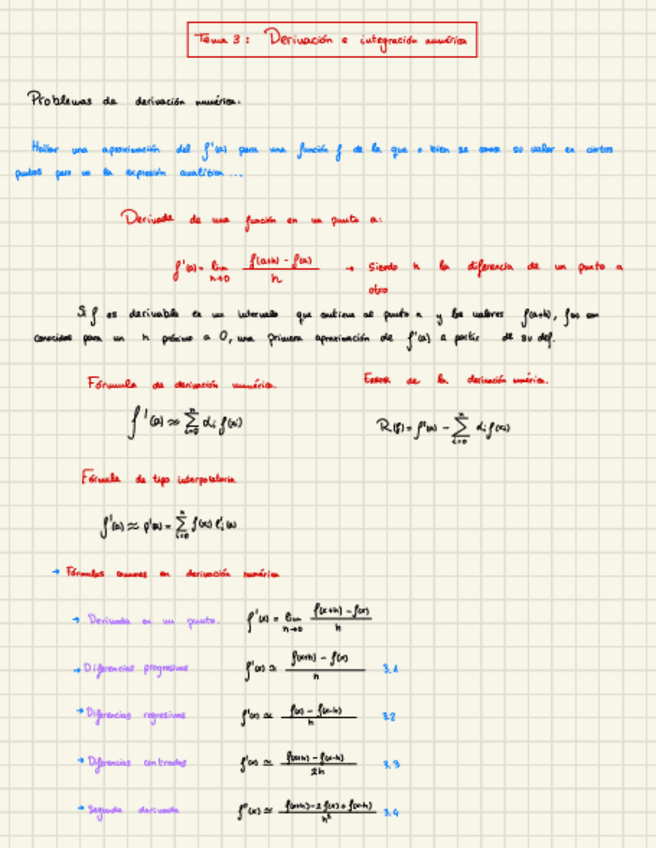 Tema 3: Derivación e integración numérica
Problemas de derivación numérica.
Hallar una aproximación del f'(a) para una función f de la que o bien se conoce su valor en ciertos
puntos pero no la expresión analítica...
Derivada de una función en un punto a:
f'(a) = lim h→0 (f(a+h) - f(a)) / h → Siendo h la diferencia de un punto a
otro
Si f es derivable en un intervalo que contiene al punto a y los valores f(a+h), f(a) son
conocidos para un h próximo a 0, una primera aproximación de f'(a) a partir de su def.
Fórmula de derivación numérica. Error de la derivación numérica.
f'(a) ≈ ∑ i=0 n αi f(xi) R(f) = f'(a) - ∑ i=0 n αi f(xi)
Fórmula de tipo interpolatorio
f'(a) ≈ p'(a) = ∑ i=0 n f(xi) ℓ'i(a)
→ Fórmulas comunes en derivación numérica
→ Derivada en un punto. f'(x) = lim h→0 (f(x+h) - f(x)) / h
→ Diferencias progresivas f'(x) ≃ (f(x+h) - f(x)) / h 3.1
→ Diferencias regresivas f'(x) ≃ (f(x) - f(x-h)) / h 3.2
→ Diferencias centradas f'(x) ≃ (f(x+h) - f(x-h)) / 2h 3.3
→ Segunda derivada f''(x) ≃ (f(x+h) - 2f(x) + f(x-h)) / h² 3.4